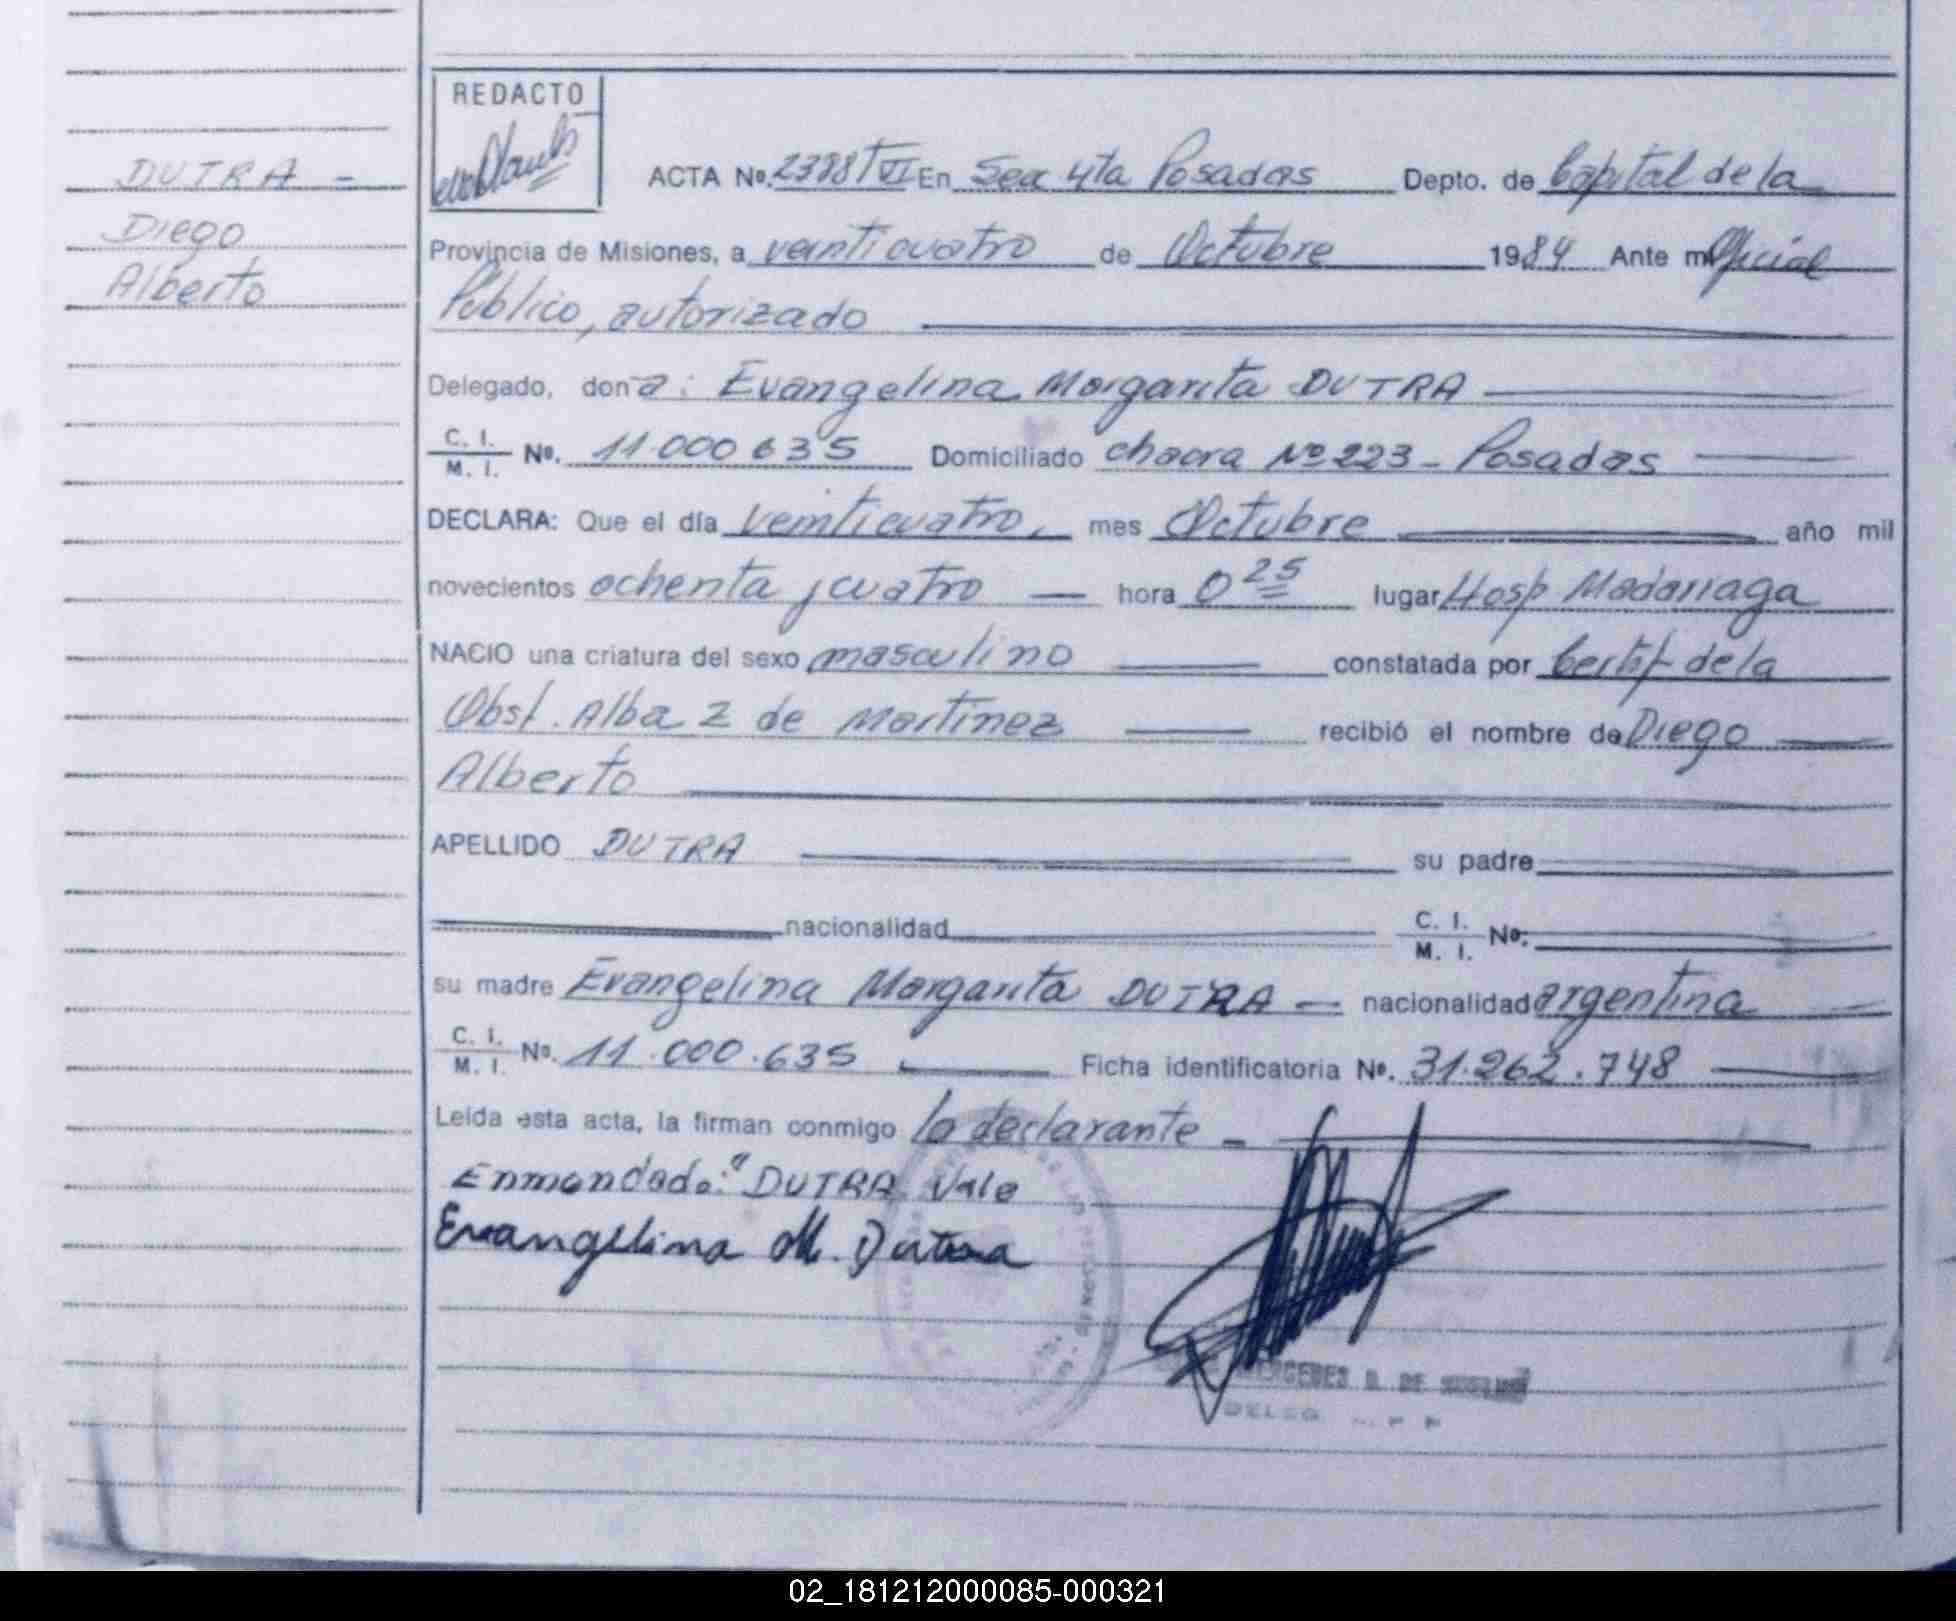 DUTRA -
Diego
Alberto
REDACTO
ACTA Nº. 2388 T VI En Sec 4ta Posadas Depto. de Capital de la
Provincia de Misiones, a veinticuatro de Octubre 1984 Ante mi Oficial
Público, autorizado
Delegado, don a: Evangelina Margarita DUTRA
C. I. / M. I. Nº. 11.000.635 Domiciliado chacra Nº 223 - Posadas
DECLARA: Que el día veinticuatro, mes Octubre año mil
novecientos ochenta y cuatro — hora 0 25 lugar Hosp Madariaga
NACIO una criatura del sexo masculino constatada por Certif de la
Obst. Alba Z de Martinez recibió el nombre de Diego
Alberto
APELLIDO DUTRA su padre
nacionalidad C. I. / M. I. Nº.
su madre Evangelina Margarita DUTRA — nacionalidad argentina
C. I. / M. I. Nº. 11.000.635 Ficha identificatoria Nº. 31.262.748
Leída esta acta, la firman conmigo la declarante -
Enmendado: "DUTRA Vale
Evangelina M. Dutra
MERCEDES DE
DELEG
02_181212000085-000321